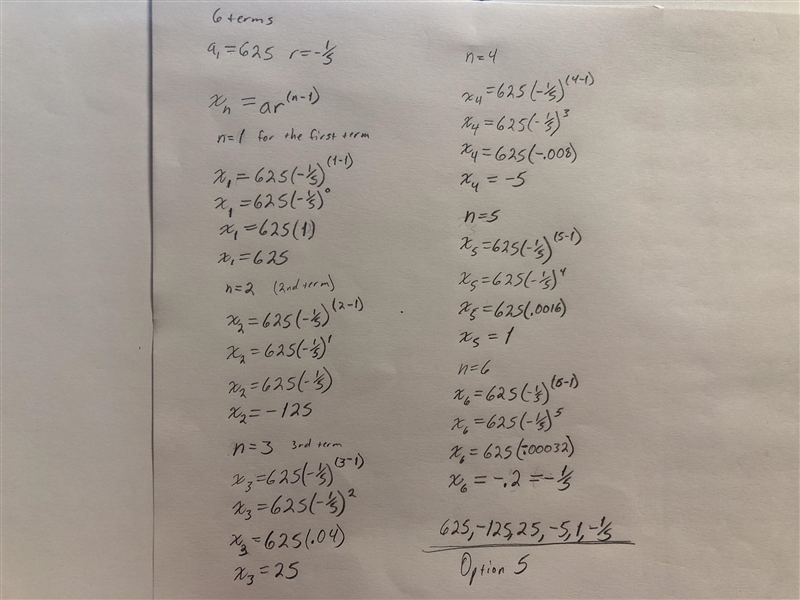 6 terms
a₁=625 r=-1/5
xₙ = ar⁽ⁿ⁻¹⁾
n=1 for the first term
x₁=625(-1/5)⁽¹⁻¹⁾
x₁=625(-1/5)⁰
x₁=625(1)
x₁=625
n=2 (2nd term)
x₂=625(-1/5)⁽²⁻¹⁾
x₂=625(-1/5)¹
x₂=625(-1/5)
x₂=-125
n=3 3rd term
x₃=625(-1/5)⁽³⁻¹⁾
x₃=625(-1/5)²
x₃=625(.04)
x₃=25
n=4
x₄=625(-1/5)⁽⁴⁻¹⁾
x₄=625(-1/5)³
x₄=625(-.008)
x₄ = -5
n=5
x₅=625(-1/5)⁽⁵⁻¹⁾
x₅=625(-1/5)⁴
x₅=625(.0016)
x₅ = 1
n=6
x₆=625(-1/5)⁽⁶⁻¹⁾
x₆=625(-1/5)⁵
x₆=625(-.00032)
x₆ = -.2 = -1/5
625,-125,25,-5,1,-1/5
Option 5